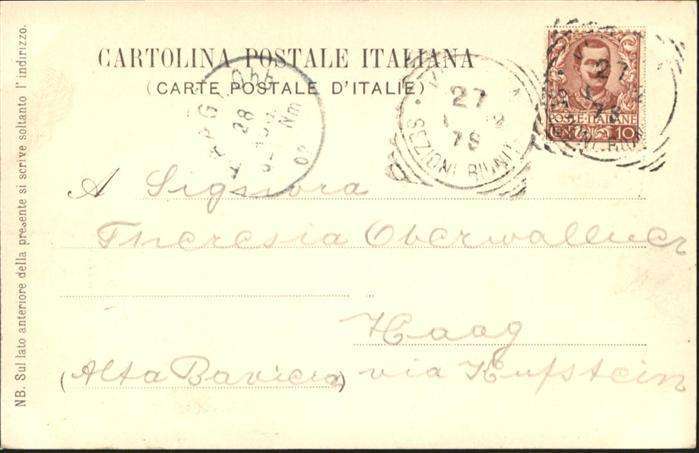 CARTOLINA POSTALE ITALIANA
(CARTE POSTALE D'ITALIE)
POSTE ITALIANE
CENT. 10
27
79
SEZIONI RIUNITE
28
Nm
02
27
A Signora
Theresia Oberwallner
Haag
(Alta Bavicia) via Kufstein
NB. Sul lato anteriore della presente si scrive soltanto l'indirizzo.